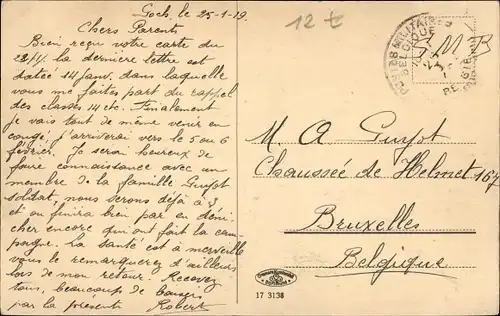 Goch, le 25-1-19.
Chers Parents
Bien reçu votre carte du
22/1. La dernière lettre est
datée 14 Janv. dans laquelle
vous me faites part du rappel
des classes 14 etc. Finalement
je vais tout de même venir en
congé, j'arriverai vers le 5 ou 6
février. Je serai heureux de
faire connaissance avec un
membre de la famille Guyot
soldat, nous serons déjà à 3,
et on finira bien par en déni-
cher encore qui ont fait la cam-
pagne. La santé est à merveille
vous le remarquerez d'ailleurs
lors de mon retour. Recevez
tous, beaucoup de baisers
par la présente Robert
12 €
POSTES MILITAIRES
BELGIQUE
S M B
M. A Guyot
Chaussée de Helmet 167
Bruxelles
Belgique
17 3138